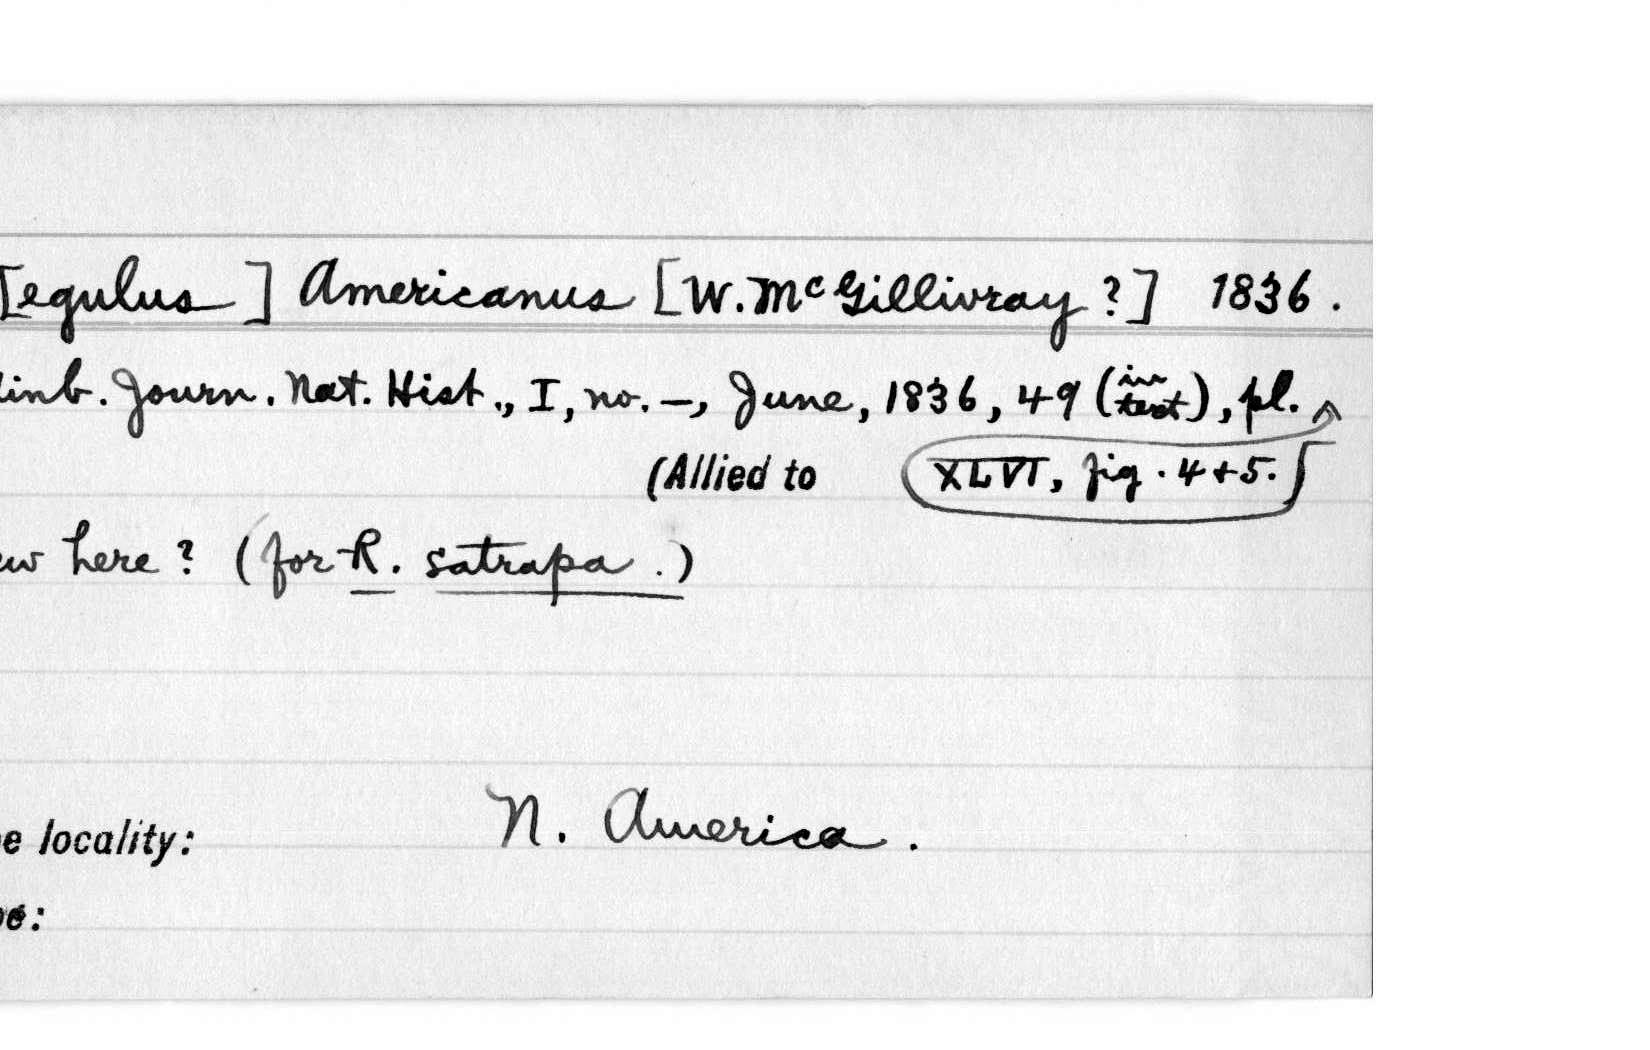 [egulus ] Americanus [W. McGillivray ?] 1836.
inb. Journ. Nat. Hist., I, no. —, June, 1836, 49 (in text), pl.
(Allied to XLVI, fig. 4 + 5.)
ew here? (for R. satrapa.)
e locality: N. America.
pe: